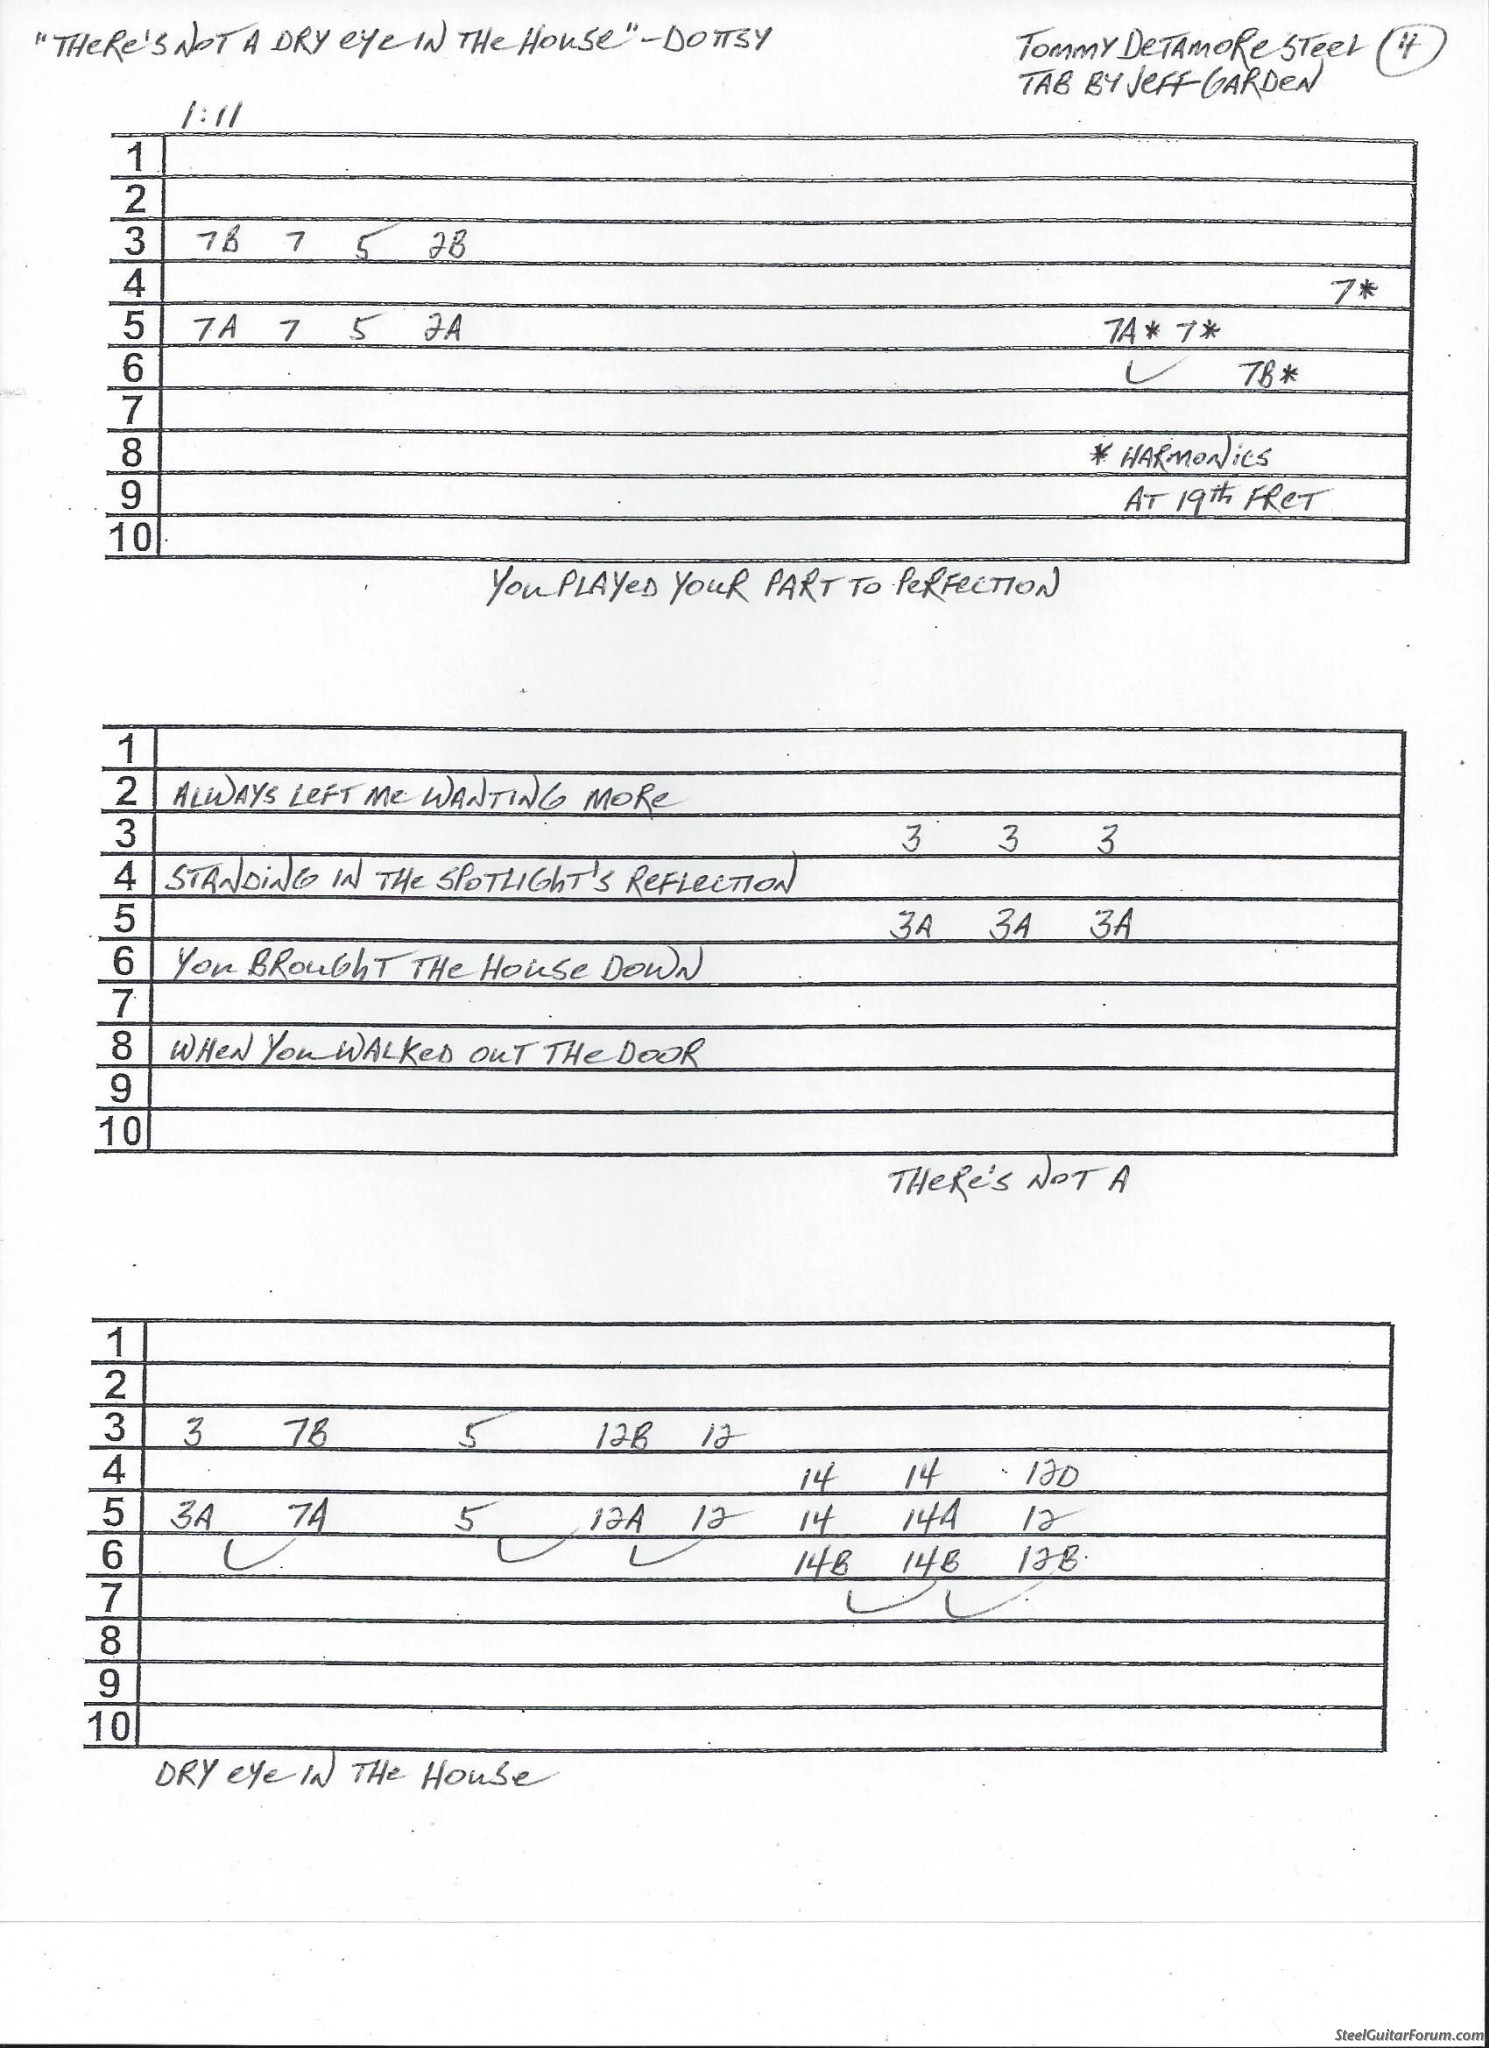 "THERE'S NOT A DRY EYE IN THE HOUSE" - DOTTSY
TOMMY DETAMORE STEEL 4
TAB BY JEFF GARDEN
1:11
1
2
3 7B 7 5 2B
4 7*
5 7A 7 5 2A 7A* 7*
6 7B*
7
8 * HARMONICS
9 AT 19th FRET
10
YOU PLAYED YOUR PART TO PERFECTION
1
2 ALWAYS LEFT ME WANTING MORE
3 3 3 3
4 STANDING IN THE SPOTLIGHT'S REFLECTION
5 3A 3A 3A
6 YOU BROUGHT THE HOUSE DOWN
7
8 WHEN YOU WALKED OUT THE DOOR
9
10
THERE'S NOT A
1
2
3 3 7B 5 12B 12
4 14 14 12D
5 3A 7A 5 12A 12 14 14A 12
6 14B 14B 12B
7
8
9
10
DRY EYE IN THE HOUSE
SteelGuitarForum.com